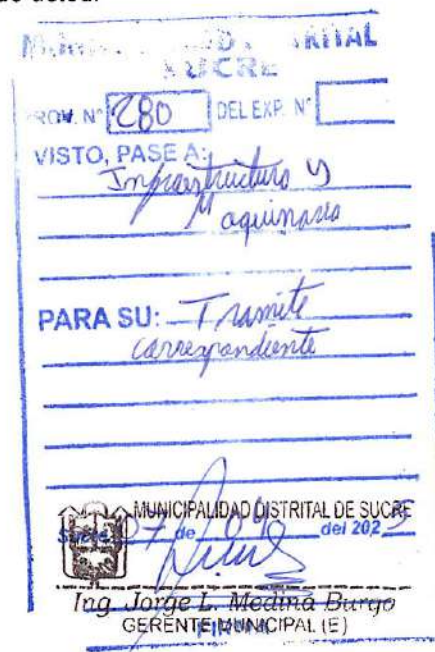 DISTRITAL
SUCRE
PROV. N° 280 DEL EXP. N°
VISTO, PASE A:
Infraestructura y
Maquinaria
PARA SU: Tramite
correspondiente
MUNICIPALIDAD DISTRITAL DE SUCRE
Sucre 07 de 04 del 2025
Ing. Jorge L. Medina Burgo
GERENTE MUNICIPAL (E)
FIRMA